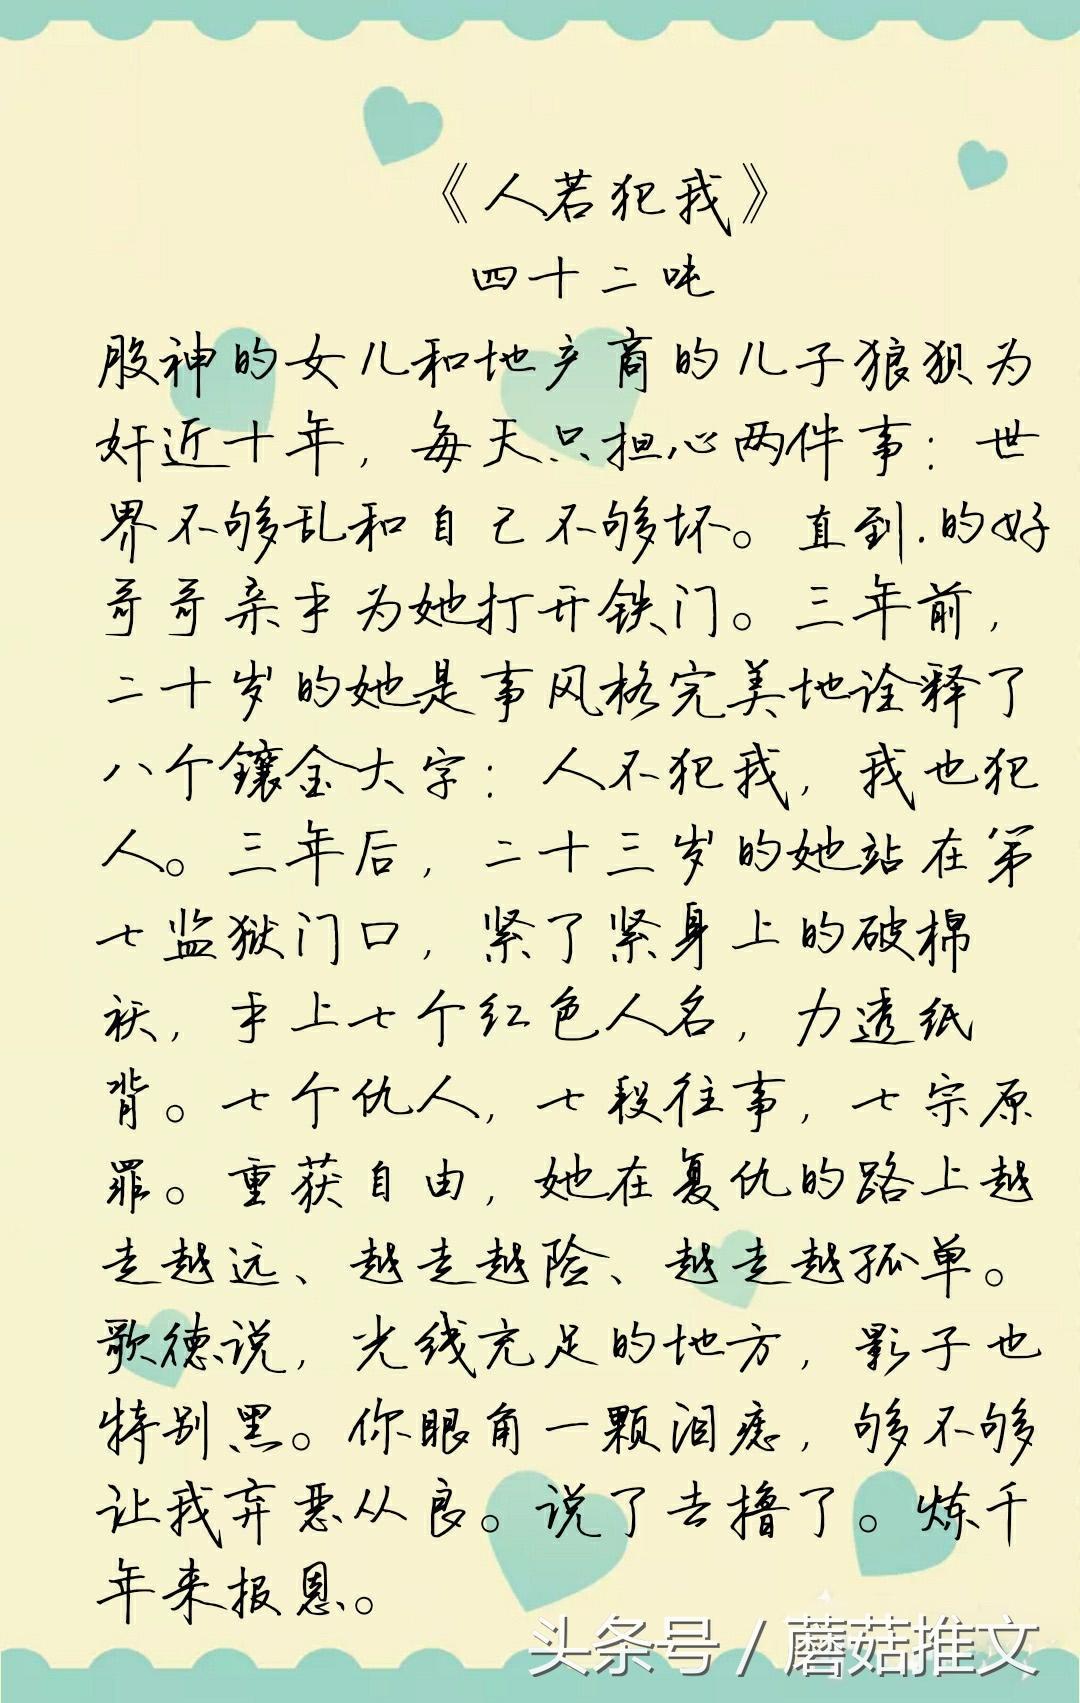 《人若犯我》
四十二吨
股神的女儿和地产商的儿子狼狈为
奸近十年，每天只担心两件事：世
界不够乱和自己不够坏。直到.的好
哥哥亲手为她打开铁门。三年前，
二十岁的她是事风格完美地诠释了
八个镶金大字：人不犯我，我也犯
人。三年后，二十三岁的她站在第
七监狱门口，紧了紧身上的破棉
袄，手上七个红色人名，力透纸
背。七个仇人，七段往事，七宗原
罪。重获自由，她在复仇的路上越
走越远、越走越险、越走越孤单。
歌德说，光线充足的地方，影子也
特别黑。你眼角一颗泪痣，够不够
让我弃恶从良。说了去撸了。炼千
年来报恩。
头条号 / 蘑菇推文